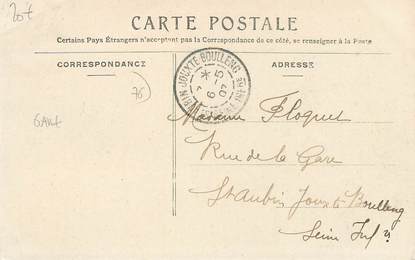 20+
CARTE POSTALE
Certains Pays Étrangers n'acceptent pas la Correspondance de ce côté, se renseigner à la Poste
CORRESPONDANCE
ADRESSE
BIN JOUXTE BOULLENG
6 - 5
07
76
Madame Floquet
Rue de la Gare
St Aubin Jouxte Boulleng
Seine Infre